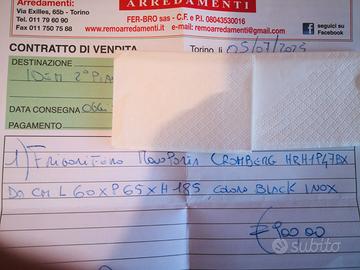 ARREDAMENTI
Arredamenti:
Via Exilles, 65b - Torino
Tel. 011 79 60 90
Fax 011 750 75 88
FER-BRO sas - C.F. e P.I. 08043530016
http://www.remoarredamenti.it/
e-mail: remoarredamenti@gmail.com
seguici su
Facebook
CONTRATTO DI VENDITA
Torino li 05/07/2025
DESTINAZIONE
IDEM 2° PIA
DATA CONSEGNA OGG
PAGAMENTO
1) FRIGORIFERO MONOPORTA CROMBERG HRH1P47BX
DA CM L 60 X P65 X H 185 COLORE BLACK INOX
€ 900.00
Subito